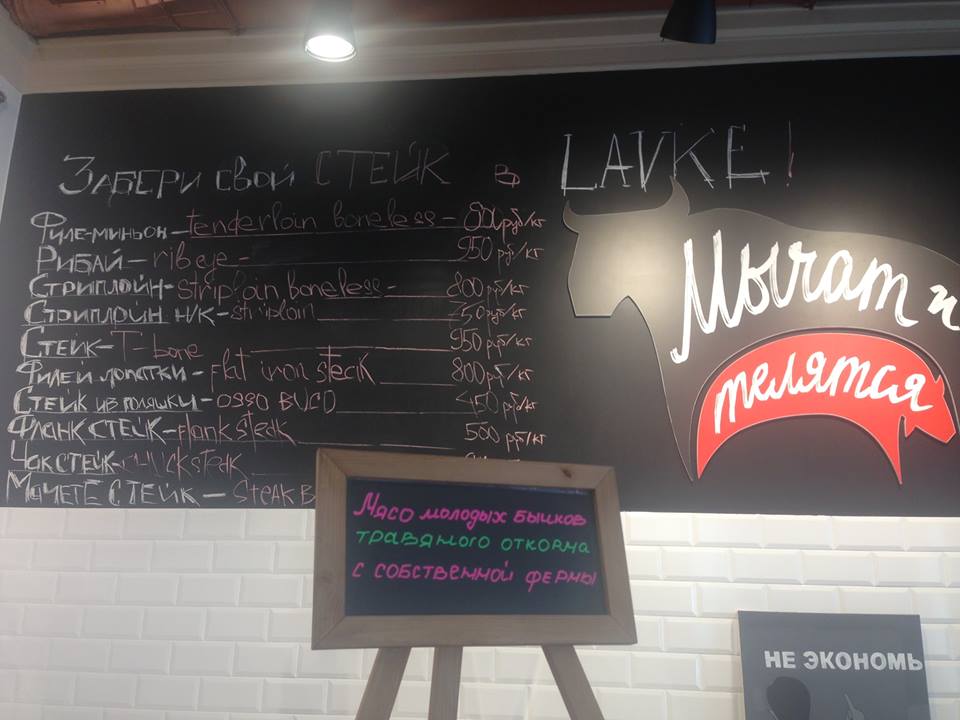 ЗАБЕРИ СВОЙ СТЕЙК В LAVKE!
ФИЛЕ-МИНЬОН - tenderloin boneless - руб/кг
РИБАЙ - ribeye - 950 руб/кг
СТРИПЛОЙН - striploin boneless - 800 руб/кг
СТРИПЛОЙН Н/К - striploin руб/кг
СТЕЙК - T-bone 950 руб/кг
ФИЛЕ И ЛОПАТКИ - flat iron steak 800 руб/кг
СТЕЙК ИЗ ГОЛЯШКИ - OSSO BUCO 450 руб/кг
ФЛАНК СТЕЙК - flank steak 500 руб/кг
ЧАК СТЕЙК - CHUCK steak
МАЧЕТЕ СТЕЙК - STEAK B
Мычат и
телятся
МЯСО МОЛОДЫХ БЫЧКОВ
ТРАВЯНОГО ОТКОРМА
С СОБСТВЕННОЙ ФЕРМЫ
НЕ ЭКОНОМЬ